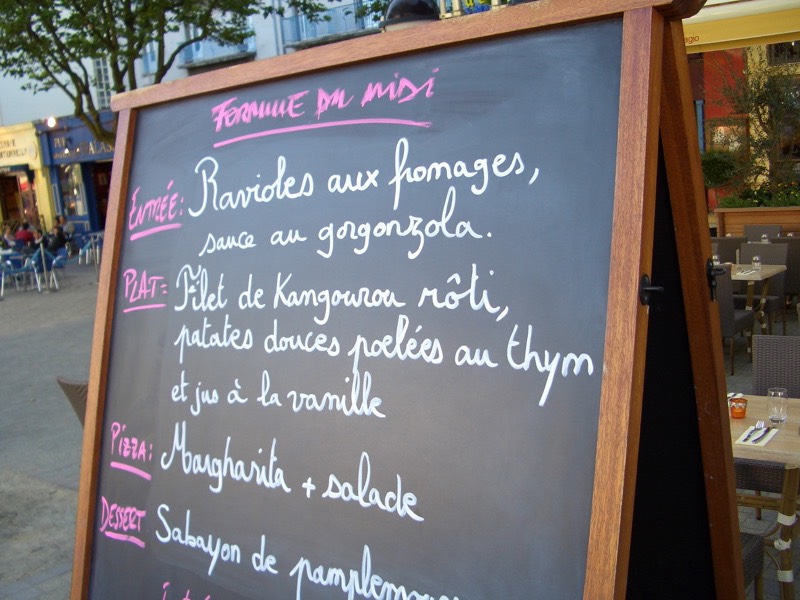 FORMULE DU MIDI
ENTRÉE: Ravioles aux fromages,
sauce au gorgonzola.
PLAT: Filet de Kangourou rôti,
patates douces poelées au thym
et jus à la vanille
PIZZA: Margharita + salade
DESSERT Sabayon de